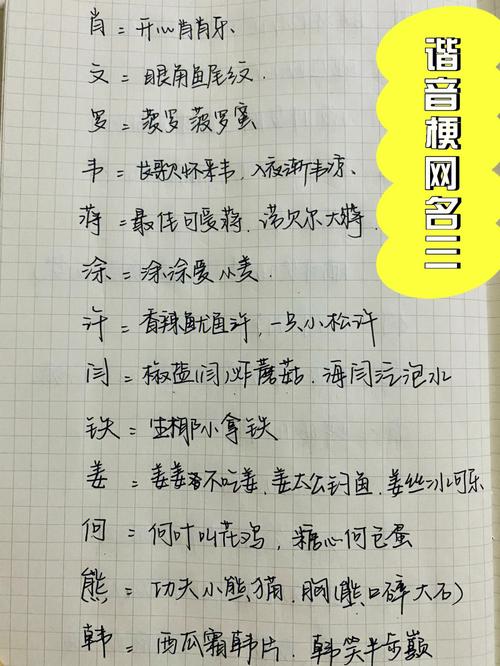 谐音梗网名三
肖 = 开心肖肖乐
文 = 眼角鱼尾纹.
罗 = 菠罗菠罗蜜
韦 = 长歌怀采韦, 入夜渐韦凉、
蒋 = 最佳可爱蒋. 诺贝尔大蒋
涂 = 涂涂爱小姜
许 = 香辣鱿鱼许, 一只小松许
闫 = 椒盐(闫)炸蘑菇. 海闫汽泡水
铁 = 生椰小拿铁
姜 = 姜姜不吃姜. 姜太公钓鱼. 姜丝冰可乐
何 = 何叶叫花鸡, 糖心何包蛋
熊 = 功夫小熊猫. 胸(熊口碎大石)
韩 = 西瓜霜韩片. 韩笑半步巅